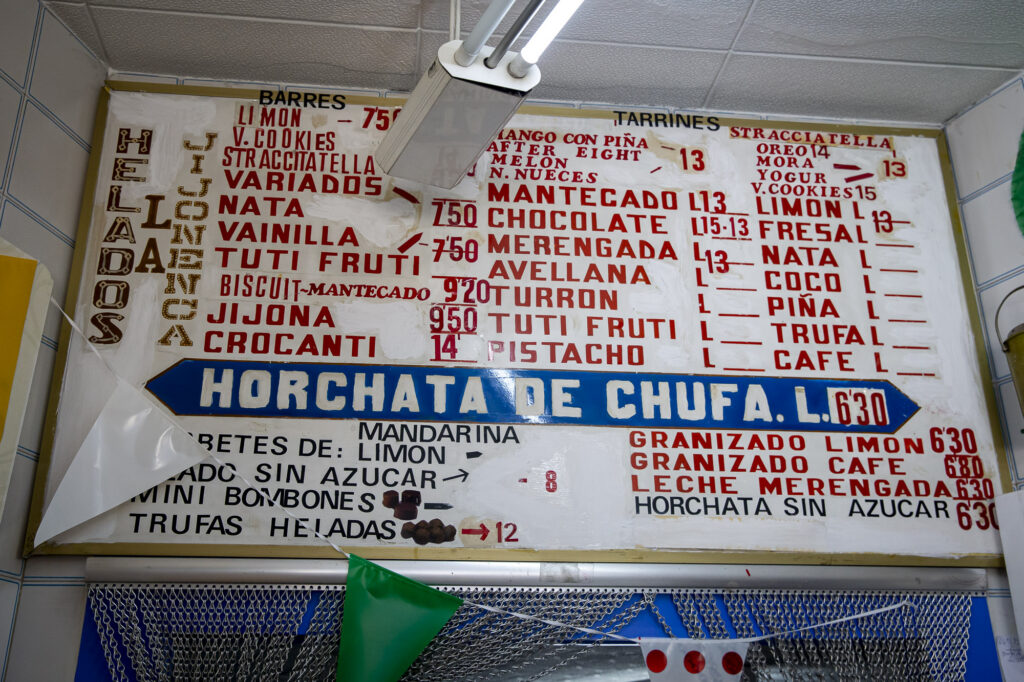 HELADOS
LA
JIJONENCA
BARRES
LIMON - 7'50
V. COOKIES
STRACCITATELLA
VARIADOS
NATA 7'50
VAINILLA
TUTI FRUTI 7'50
BISCUIT~MANTECADO 9'20
JIJONA 9'50
CROCANTI 14
TARRINES
MANGO CON PIÑA
AFTER EIGHT - 13
MELON
N. NUECES
MANTECADO L13
CHOCOLATE L15-13
MERENGADA L
AVELLANA L13
TURRON L
TUTI FRUTI L
PISTACHO L
STRACCIATELLA
OREO 14
MORA - 13
YOGUR
V. COOKIES 15
LIMON L
FRESA L 13
NATA L
COCO L
PIÑA L
TRUFA L
CAFE L
HORCHATA DE CHUFA. L. 6'30
BETES DE: MANDARINA
LIMON
LADO SIN AZUCAR → - 8
MINI BOMBONES
TRUFAS HELADAS → 12
GRANIZADO LIMON 6'30
GRANIZADO CAFE 6'80
LECHE MERENGADA 6'30
HORCHATA SIN AZUCAR 6'30